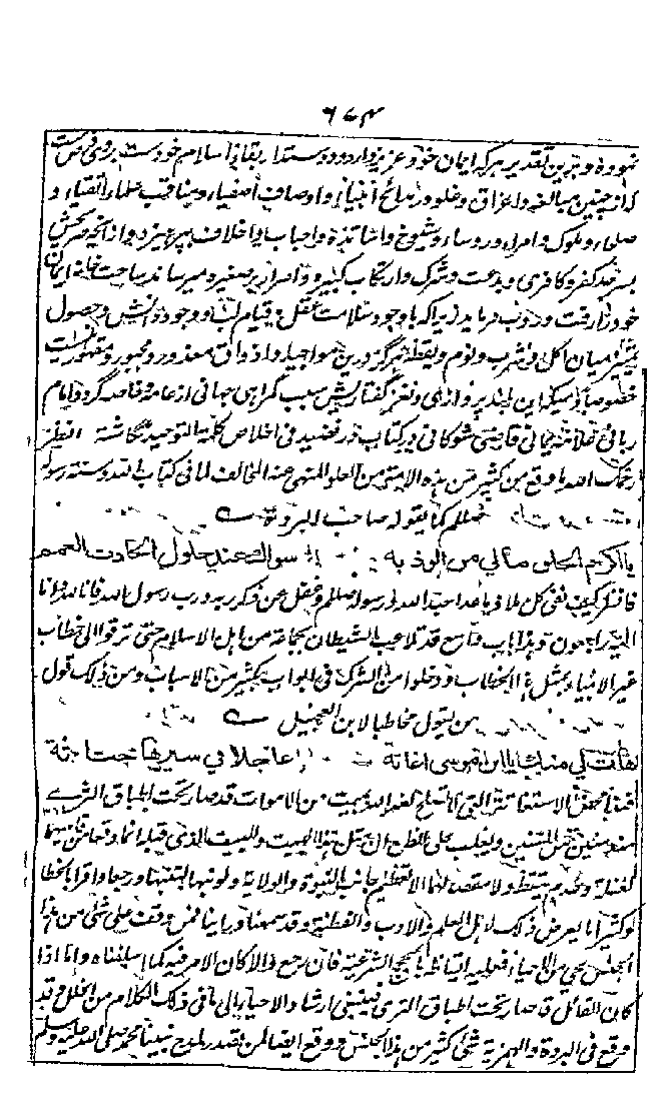 ۶۷۴
نموده و برین تقدیر هر که ایمان خود عزیز دارد و دوستدار بقای اسلام خودست بروی فرض ست
که از چنین مبالغه و اغراق و غلو در مدائح انبیاء و اوصاف اصفیاء و مناقب علماء اتقیاء و
صلحاء و ملوک و امراء و رؤساء و شیوخ و اساتذه و احباب و اخلاف بپرهیزد و از آنچه سرحدش
بسرحد کفر و کافری و بدعت و شرک و ارتکاب کبیره و اصرار بر صغیره میرساند ساحت خانه ایمان
خود را رفت و روب فرماید زیرا که با وجود سلامت عقل و قیام و وجود دانش و حصول
تمییز میان اکل و شرب و نوم و یقظه هرگز درین مواجید و اذواق معذور و مجبور و مقهور نیست
خصوصا کسیکه این بلند پروازی و نغز گفتاریش سبب گمراهی جهانی از عامه و خاصه گردد امام
ربانی علامه یمانی قاضی شوکانی در کتاب در نضید فی اخلاص کلمة التوحید نگاشته انظر
رحمک الله ما وقع من کثیر من هذه الامة من الغلو المنهی عنه المخالف لما فی کتاب الله و سنة رسوله
صلعم کما یقوله صاحب البردة
یا اکرم الخلق مالی من الوذ به سواک عند حلول الحادث العمم
فانظر کیف نفی کل ملاذ ما عدا عبد الله و رسوله صلعم و غفل عن ذکر ربه و رب رسول الله فانا لله و انا
الیه راجعون و هذا باب واسع قد تلاعب الشیطان بجماعة من اهل الاسلام حتی ترقوا الی خطاب
غیر الانبیاء بمثل هذا الخطاب و دخلوا من الشرک فی ابواب بکثیر من الاسباب و من ذلک قول
من یقول مخاطبا لابن العجیل
هات لی منک یا ابن موسی اغاثة عاجلا فی سیرها حثاثة
فهذا محض الاستغاثة التی لا تصلح لغیر الله بمیت من الاموات قد صار تحت اطباق الثری
منذ مئین من السنین و یغلب علی الظن ان مثل هذا البیت و البیت الذی قبله انما وقعا من قائلیهما
لغفلة و عدم تیقظ و لا مقصد لهما الا تعظیم جانب النبوة و الولایة و لو نبها لتنبها و رجعا و اقرا بالخطا
و کثیرا ما یعرض ذلک لاهل العلم و الادب و الفطنة و قد سمعنا و راینا فمن وقف علی شئ من هذا
الجنس بحی من الاحیاء فعلیه ایقاظه بالحجج الشرعیة فان رجع و الا کان الامر فیه کما اسلفناه و اما اذا
کان القائل قد صار تحت اطباق الثری فینبغی ارشاد الاحیاء الی ما فی ذلک الکلام من الخلل و قد
وقع فی البردة و الهمزیة شئ کثیر من هذا الجنس و وقع ایضا لمن تصدر لمدح نبینا محمد صلی الله علیه و سلم